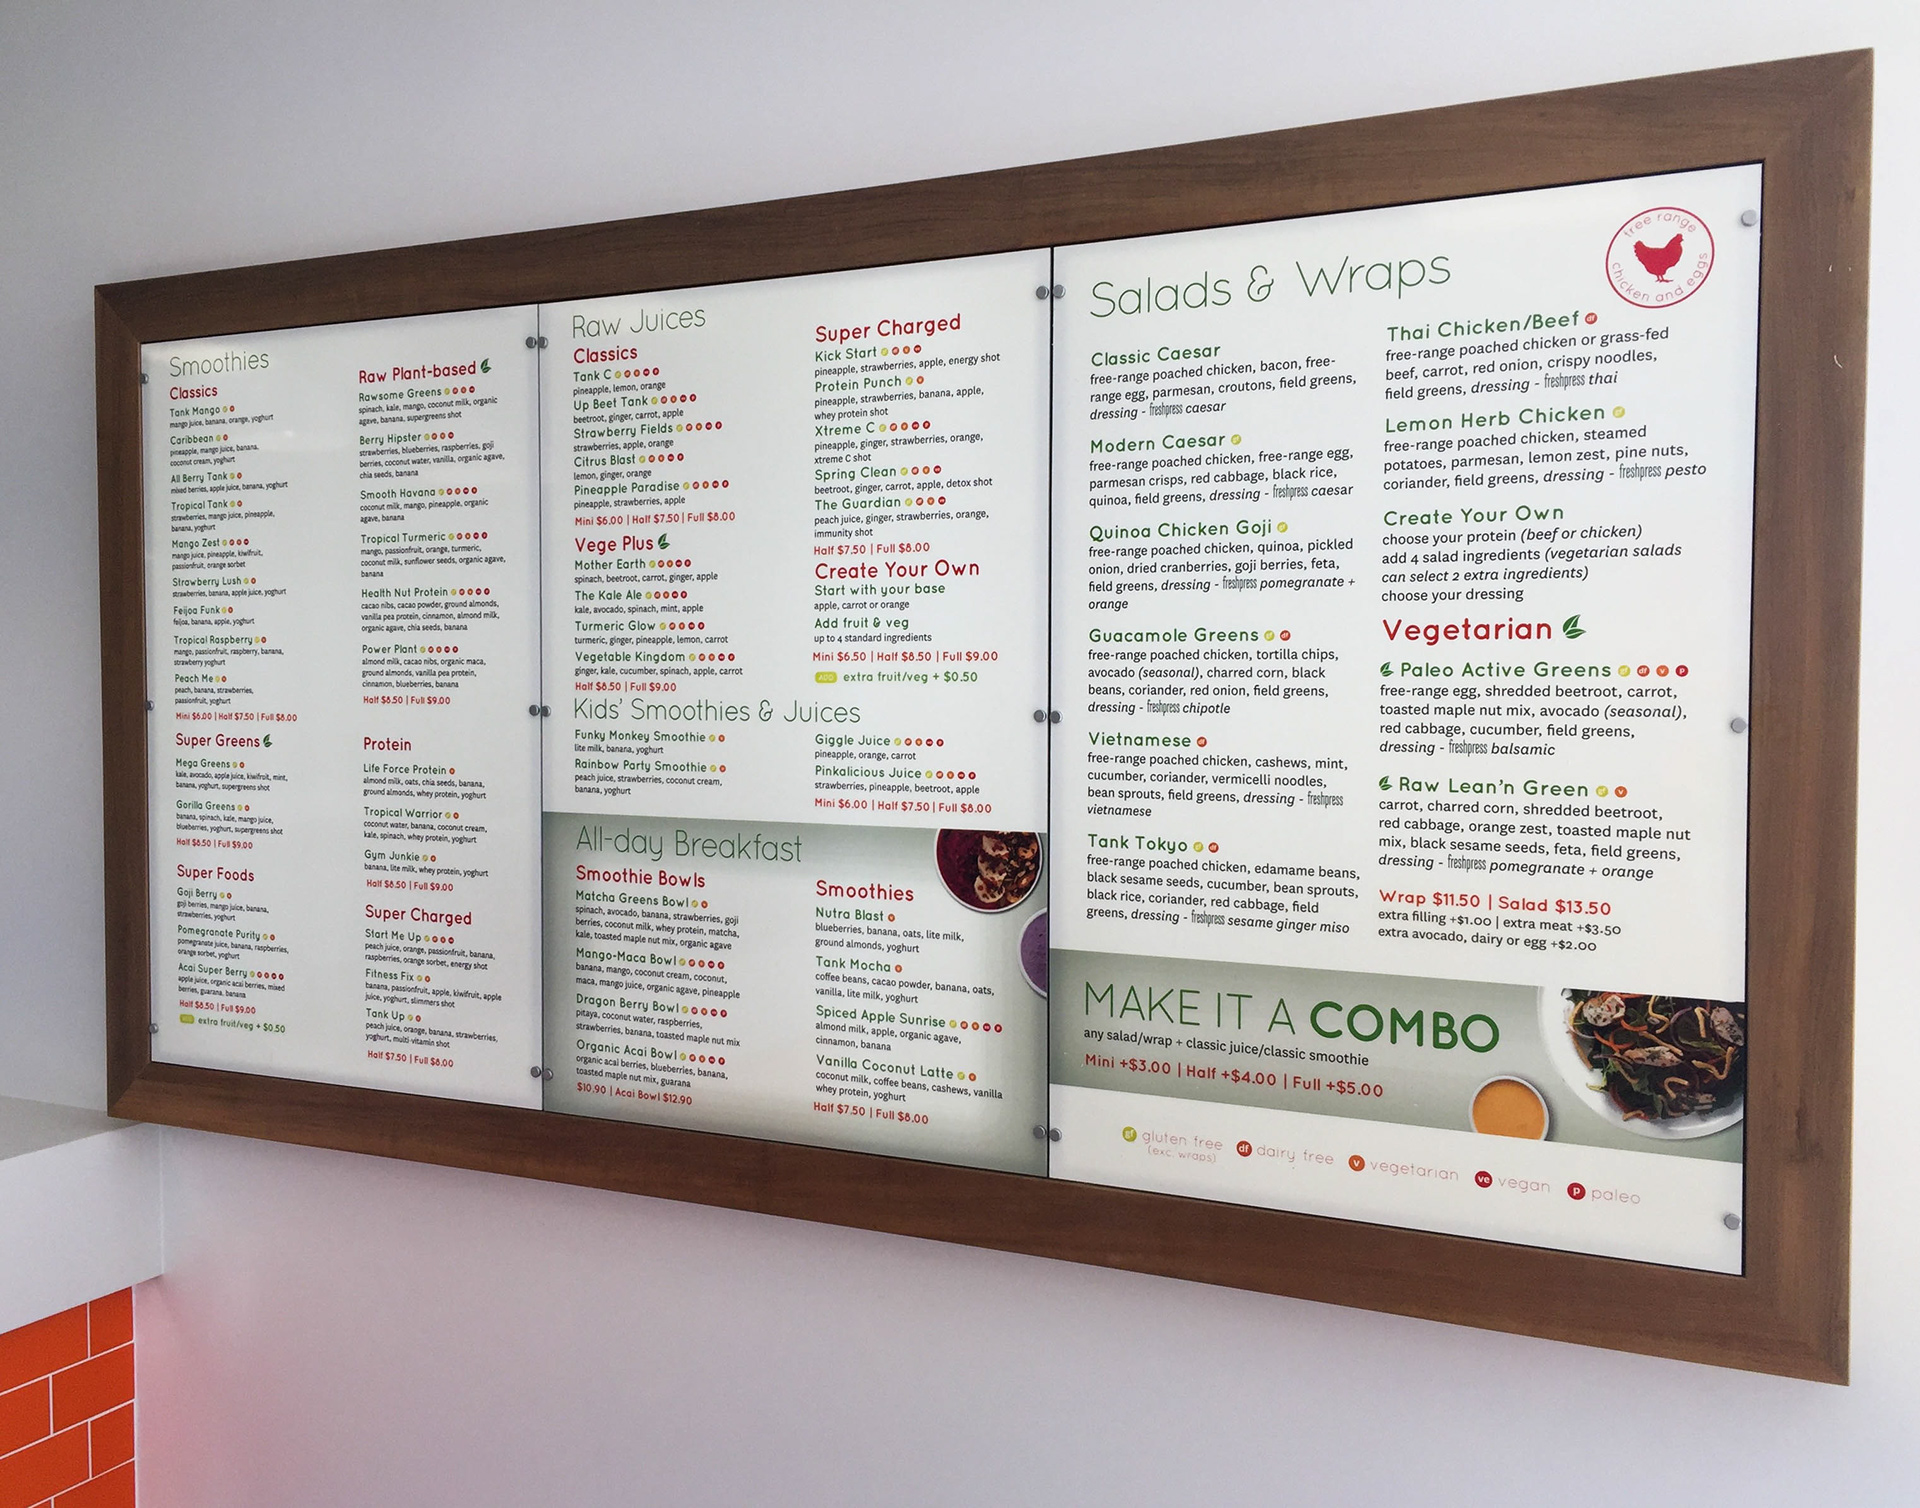 Smoothies
Classics
Tank Mango
mango juice, banana, orange, yoghurt
Caribbean
pineapple, mango juice, banana,
coconut cream, yoghurt
All Berry Tank
mixed berries, apple juice, banana, yoghurt
Tropical Tank
strawberries, mango juice, pineapple,
banana, yoghurt
Mango Zest
mango juice, pineapple, kiwifruit,
passionfruit, orange sorbet
Strawberry Lush
strawberries, banana, apple juice, yoghurt
Feijoa Funk
feijoa, banana, apple, yoghurt
Tropical Raspberry
mango, passionfruit, raspberry, banana,
strawberry yoghurt
Peach Me
peach, banana, strawberries,
passionfruit, yoghurt
Mini $6.00 | Half $7.50 | Full $8.00
Super Greens
Mega Greens
kale, avocado, apple juice, kiwifruit, mint,
banana, yoghurt, supergreens shot
Gorilla Greens
banana, spinach, kale, mango juice,
blueberries, yoghurt, supergreens shot
Half $8.50 | Full $9.00
Super Foods
Goji Berry
goji berries, mango juice, banana,
strawberries, yoghurt
Pomegranate Purity
pomegranate juice, banana, raspberries,
orange sorbet, yoghurt
Acai Super Berry
apple juice, organic acai berries, mixed
berries, guarana, banana
Half $8.50 | Full $9.00
ADD extra fruit/veg + $0.50
Raw Plant-based
Rawsome Greens
spinach, kale, mango, coconut milk, organic
agave, banana, supergreens shot
Berry Hipster
strawberries, blueberries, raspberries, goji
berries, coconut water, vanilla, organic agave,
chia seeds, banana
Smooth Havana
coconut milk, mango, pineapple, organic
agave, banana
Tropical Turmeric
mango, passionfruit, orange, turmeric,
coconut milk, sunflower seeds, organic agave,
banana
Health Nut Protein
cacao nibs, cacao powder, ground almonds,
vanilla pea protein, cinnamon, almond milk,
organic agave, chia seeds, banana
Power Plant
almond milk, cacao nibs, organic maca,
ground almonds, vanilla pea protein,
cinnamon, blueberries, banana
Half $8.50 | Full $9.00
Protein
Life Force Protein
almond milk, oats, chia seeds, banana,
ground almonds, whey protein, yoghurt
Tropical Warrior
coconut water, banana, coconut cream,
kale, spinach, whey protein, yoghurt
Gym Junkie
banana, lite milk, whey protein, yoghurt
Half $8.50 | Full $9.00
Super Charged
Start Me Up
peach juice, orange, passionfruit, banana,
raspberries, orange sorbet, energy shot
Fitness Fix
banana, passionfruit, apple, kiwifruit, apple
juice, yoghurt, slimmers shot
Tank Up
peach juice, orange, banana, strawberries,
yoghurt, multi-vitamin shot
Half $7.50 | Full $8.00
Raw Juices
Classics
Tank C
pineapple, lemon, orange
Up Beet Tank
beetroot, ginger, carrot, apple
Strawberry Fields
strawberries, apple, orange
Citrus Blast
lemon, ginger, orange
Pineapple Paradise
pineapple, strawberries, apple
Mini $6.00 | Half $7.50 | Full $8.00
Vege Plus
Mother Earth
spinach, beetroot, carrot, ginger, apple
The Kale Ale
kale, avocado, spinach, mint, apple
Turmeric Glow
turmeric, ginger, pineapple, lemon, carrot
Vegetable Kingdom
ginger, kale, cucumber, spinach, apple, carrot
Half $8.50 | Full $9.00
Super Charged
Kick Start
pineapple, strawberries, apple, energy shot
Protein Punch
pineapple, strawberries, banana, apple,
whey protein shot
Xtreme C
pineapple, ginger, strawberries, orange,
xtreme C shot
Spring Clean
beetroot, ginger, carrot, apple, detox shot
The Guardian
peach juice, ginger, strawberries, orange,
immunity shot
Half $7.50 | Full $8.00
Create Your Own
Start with your base
apple, carrot or orange
Add fruit & veg
up to 4 standard ingredients
Mini $6.50 | Half $8.50 | Full $9.00
ADD extra fruit/veg + $0.50
Kids' Smoothies & Juices
Funky Monkey Smoothie
lite milk, banana, yoghurt
Rainbow Party Smoothie
peach juice, strawberries, coconut cream,
banana, yoghurt
Giggle Juice
pineapple, orange, carrot
Pinkalicious Juice
strawberries, pineapple, beetroot, apple
Mini $6.00 | Half $7.50 | Full $8.00
All-day Breakfast
Smoothie Bowls
Matcha Greens Bowl
spinach, avocado, banana, strawberries, goji
berries, coconut milk, whey protein, matcha,
kale, toasted maple nut mix, organic agave
Mango-Maca Bowl
banana, mango, coconut cream, coconut,
maca, mango juice, organic agave, pineapple
Dragon Berry Bowl
pitaya, coconut water, raspberries,
strawberries, banana, toasted maple nut mix
Organic Acai Bowl
organic acai berries, blueberries, banana,
toasted maple nut mix, guarana
$10.90 | Acai Bowl $12.90
Smoothies
Nutra Blast
blueberries, banana, oats, lite milk,
ground almonds, yoghurt
Tank Mocha
coffee beans, cacao powder, banana, oats,
vanilla, lite milk, yoghurt
Spiced Apple Sunrise
almond milk, apple, organic agave,
cinnamon, banana
Vanilla Coconut Latte
coconut milk, coffee beans, cashews, vanilla
whey protein, yoghurt
Half $7.50 | Full $8.00
Salads & Wraps
free range
chicken and eggs
Classic Caesar
free-range poached chicken, bacon, free-
range egg, parmesan, croutons, field greens,
dressing - freshpress caesar
Modern Caesar gf
free-range poached chicken, free-range egg,
parmesan crisps, red cabbage, black rice,
quinoa, field greens, dressing - freshpress caesar
Quinoa Chicken Goji gf
free-range poached chicken, quinoa, pickled
onion, dried cranberries, goji berries, feta,
field greens, dressing - freshpress pomegranate +
orange
Guacamole Greens gf df
free-range poached chicken, tortilla chips,
avocado (seasonal), charred corn, black
beans, coriander, red onion, field greens,
dressing - freshpress chipotle
Vietnamese df
free-range poached chicken, cashews, mint,
cucumber, coriander, vermicelli noodles,
bean sprouts, field greens, dressing - freshpress
vietnamese
Tank Tokyo gf df
free-range poached chicken, edamame beans,
black sesame seeds, cucumber, bean sprouts,
black rice, coriander, red cabbage, field
greens, dressing - freshpress sesame ginger miso
Thai Chicken/Beef df
free-range poached chicken or grass-fed
beef, carrot, red onion, crispy noodles,
field greens, dressing - freshpress thai
Lemon Herb Chicken gf
free-range poached chicken, steamed
potatoes, parmesan, lemon zest, pine nuts,
coriander, field greens, dressing - freshpress pesto
Create Your Own
choose your protein (beef or chicken)
add 4 salad ingredients (vegetarian salads
can select 2 extra ingredients)
choose your dressing
Vegetarian
Paleo Active Greens gf df v p
free-range egg, shredded beetroot, carrot,
toasted maple nut mix, avocado (seasonal),
red cabbage, cucumber, field greens,
dressing - freshpress balsamic
Raw Lean'n Green gf v
carrot, charred corn, shredded beetroot,
red cabbage, orange zest, toasted maple nut
mix, black sesame seeds, feta, field greens,
dressing - freshpress pomegranate + orange
Wrap $11.50 | Salad $13.50
extra filling +$1.00 | extra meat +$3.50
extra avocado, dairy or egg +$2.00
MAKE IT A COMBO
any salad/wrap + classic juice/classic smoothie
Mini +$3.00 | Half +$4.00 | Full +$5.00
gf gluten free
(exc. wraps)
df dairy free
v vegetarian
ve vegan
p paleo